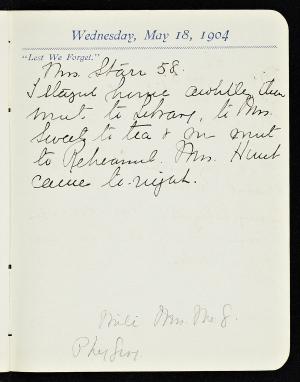 Wednesday, May 18, 1904
"Lest We Forget."
Mrs. Starr 58.
I stayed home awhile, then
went to Library, to Mrs.
Sweet to tea & we went
to Rehearsal. Mrs. Hunt
came to-night.
Mrs. Mc G.